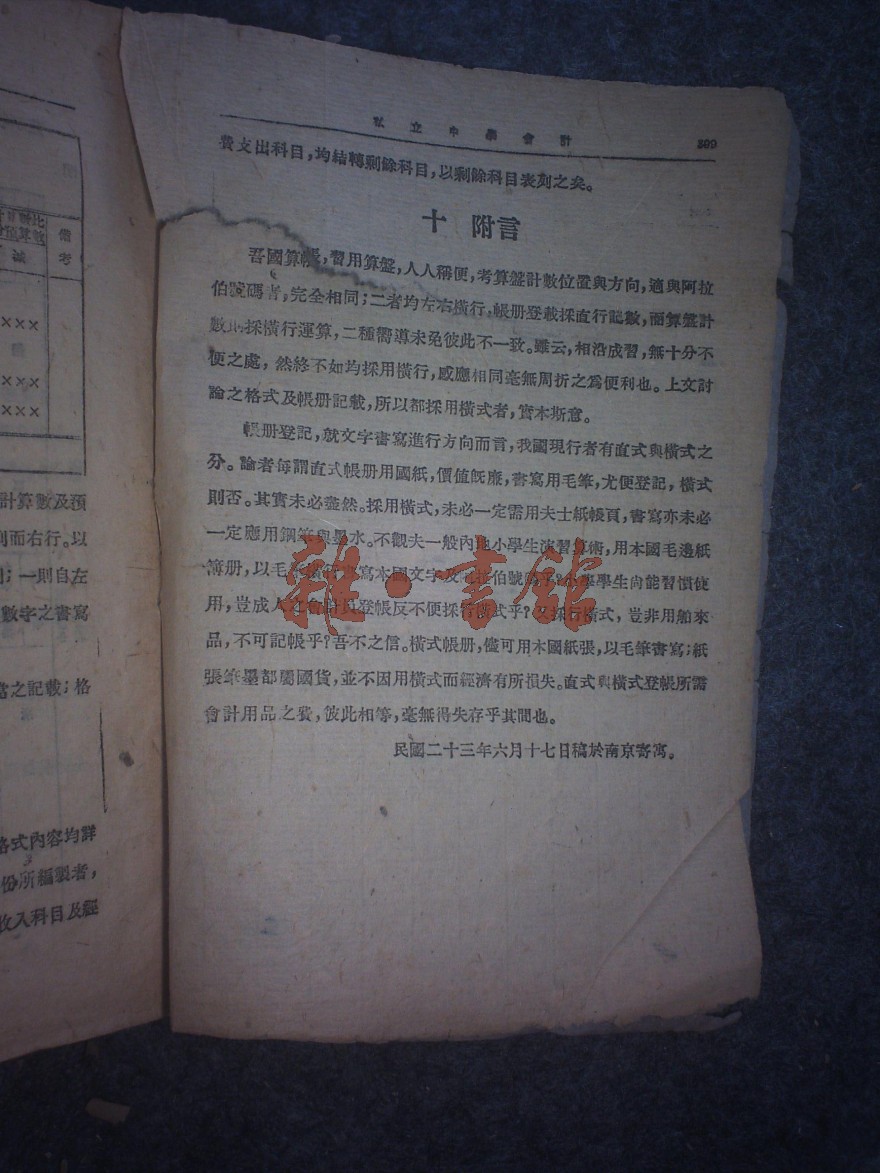 計算數及預
列而右行。以
一則自左
數字之書寫
當之記載；格
格式內容均詳
份所編製者，
收入科目及經
備考
×××
×××
×××
私立中學會計
費支出科目，均結轉剩餘科目，以剩餘科目表列之矣。
十 附言
吾國算帳，習用算盤，人人稱便，考算盤計數位置與方向，適與阿拉
伯號碼者，完全相同；二者均左右橫行，帳册登載採直行記數，而算盤計
數則採橫行運算，二種嚮導未免彼此不一致。雖云，相沿成習，無十分不
便之處，然終不如均採用橫行，感應相同毫無周折之爲便利也。上文討
論之格式及帳册記載，所以都採用橫式者，實本斯意。
帳册登記，就文字書寫進行方向而言，我國現行者有直式與橫式之
分。論者每謂直式帳册用國紙，價值旣廉，書寫用毛筆，尤便登記，橫式
則否。其實未必盡然。採用橫式，未必一定需用夫士紙帳頁，書寫亦未必
一定應用鋼筆與墨水。不觀夫一般內地小學生演習算術，用本國毛邊紙
簿册，以毛筆橫行書寫本國文字及阿拉伯號碼乎？小學學生尙能習慣使
用，豈成人之會計員登帳反不便採習橫式乎？又採行橫式，豈非用舶來
品，不可記帳乎？吾不之信。橫式帳册，儘可用本國紙張，以毛筆書寫；紙
張筆墨都屬國貨，並不因用橫式而經濟有所損失。直式與橫式登帳所需
會計用品之費，彼此相等，毫無得失存乎其間也。
民國二十三年六月十七日稿於南京寄寓。
雜·書館